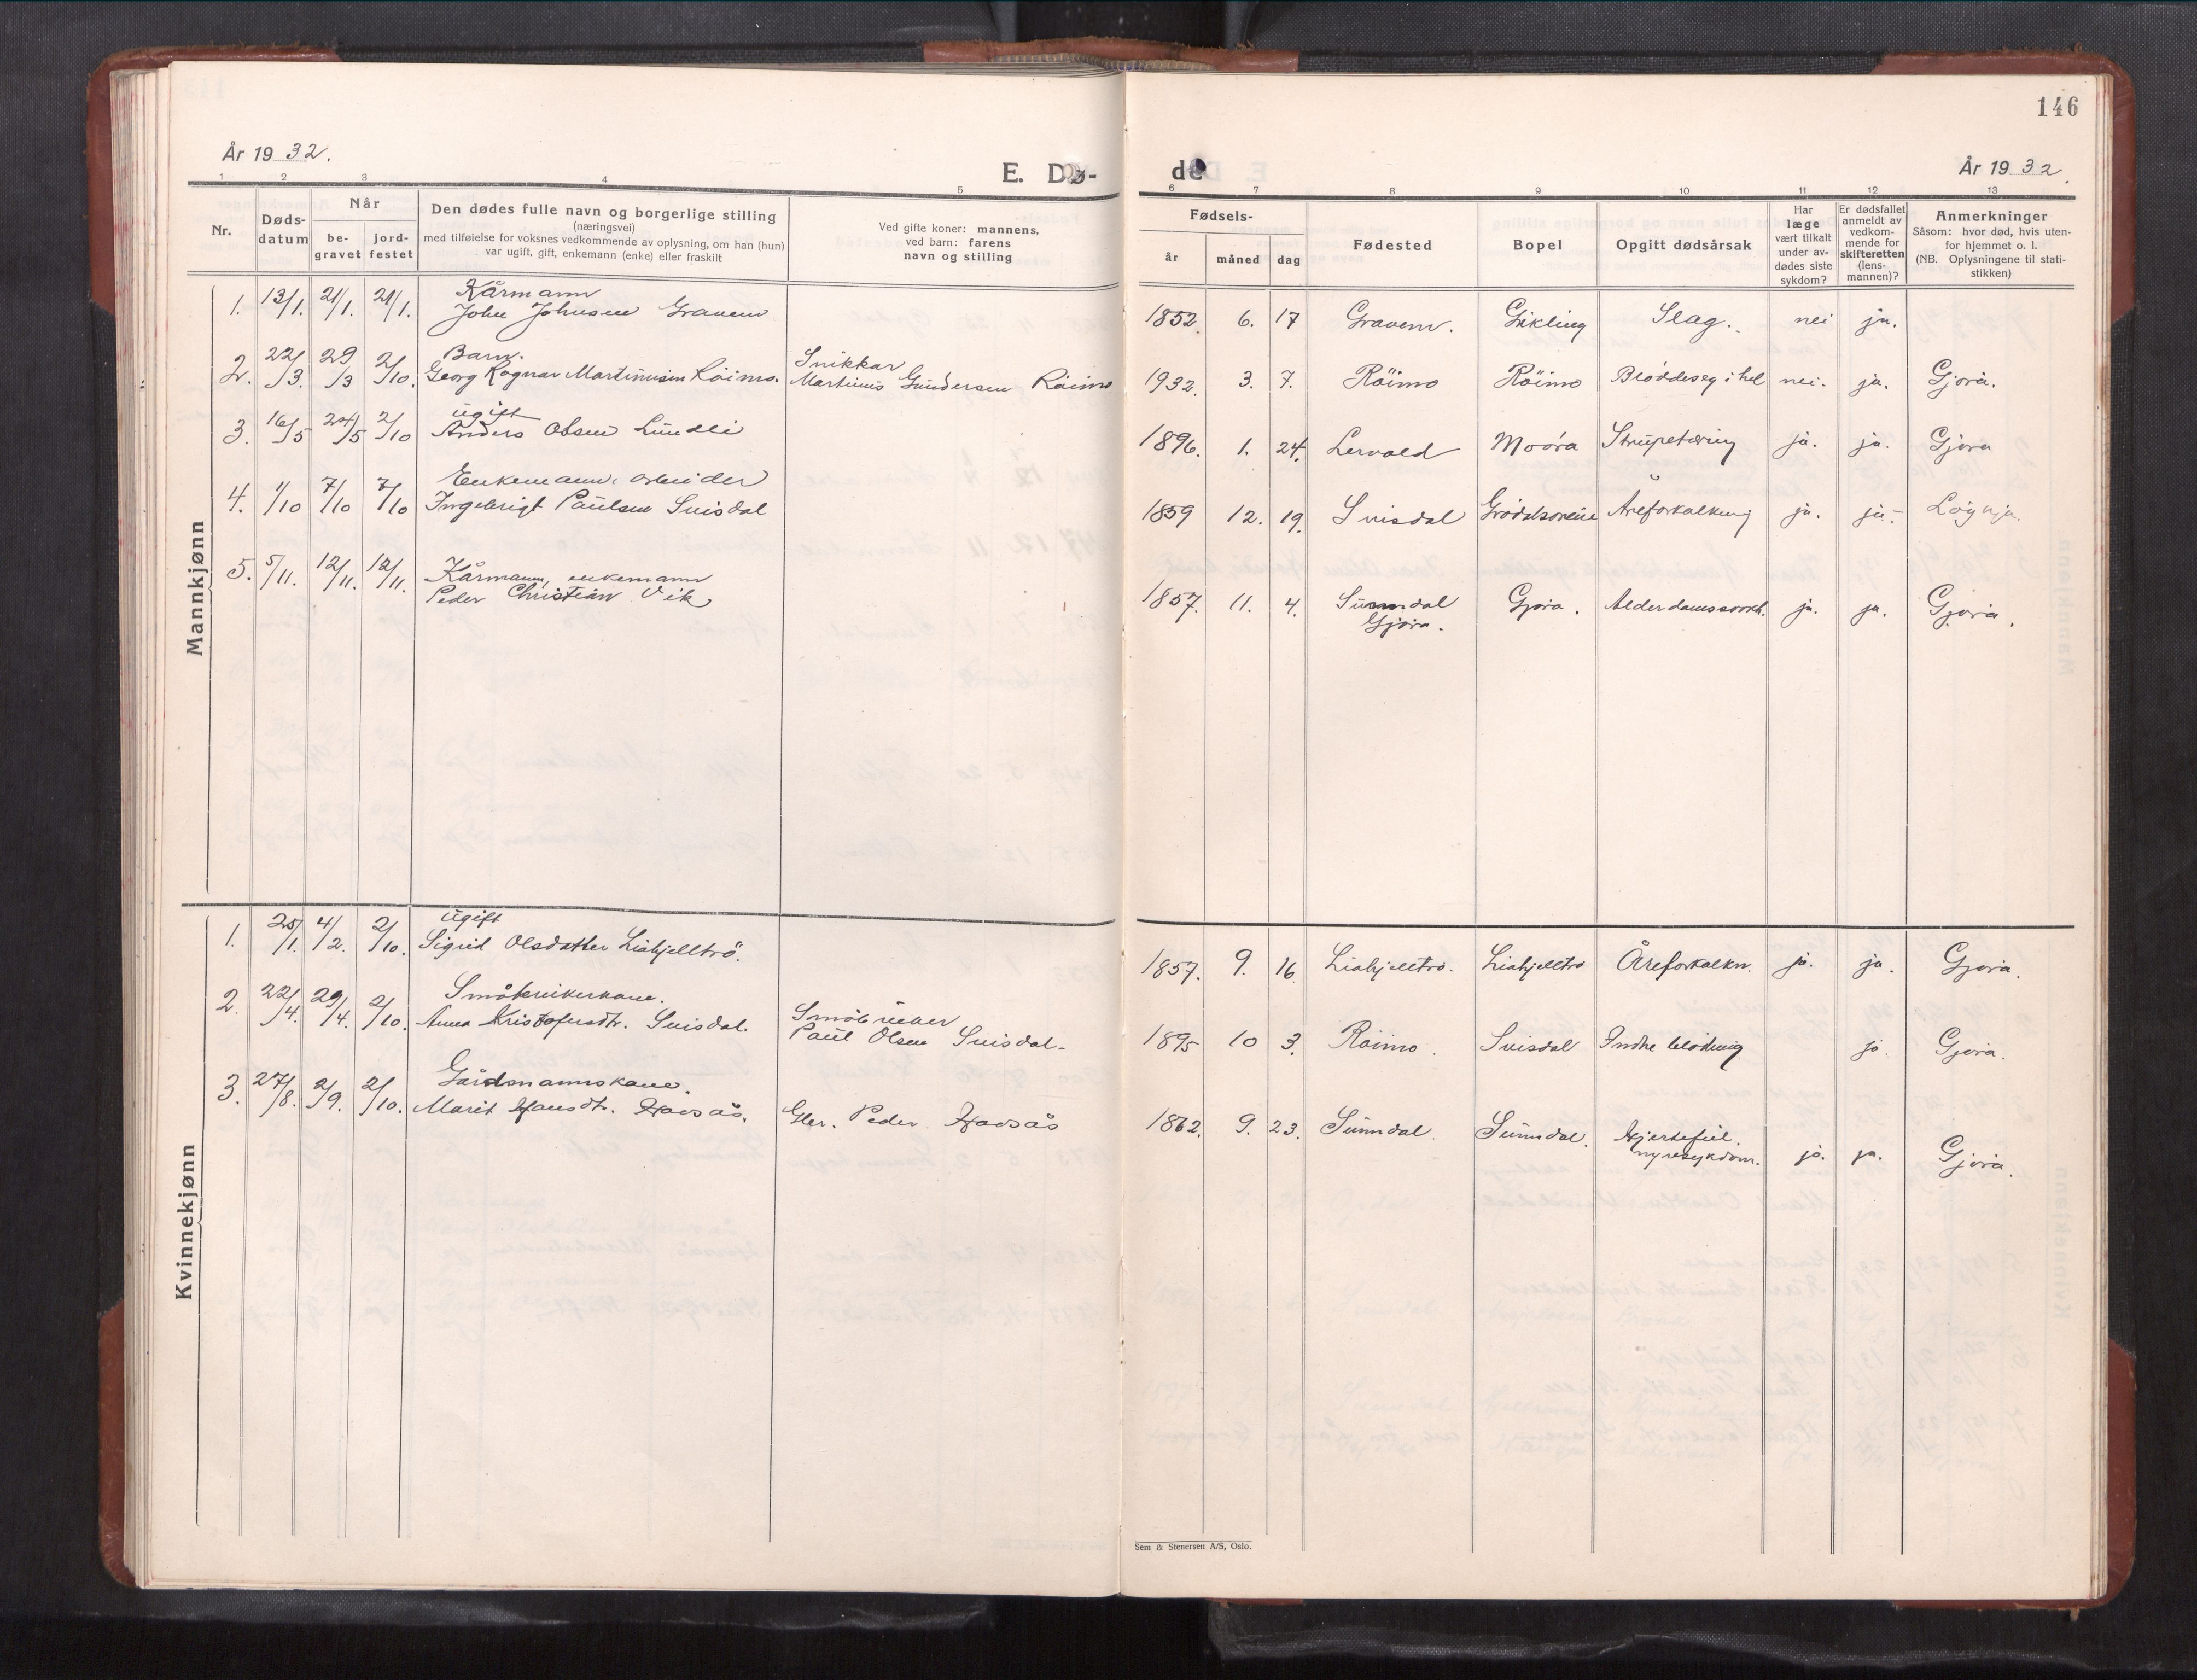 146
År 1932.
E. Dø-
de
År 1932.
1 2 3 4 5
6 7 8 9 10 11 12 13
Nr.
Døds-
datum
Når
be-
gravet
jord-
festet
Den dødes fulle navn og borgerlige stilling
(næringsvei)
med tilføielse for voksnes vedkommende av oplysning, om han (hun)
var ugift, gift, enkemann (enke) eller fraskilt
Ved gifte koner: mannens,
ved barn: farens
navn og stilling
Fødsels-
år måned dag
Fødested
Bopel
Opgitt dødsårsak
Har
læge
vært tilkalt
under av-
dødes siste
sykdom?
Er dødsfallet
anmeldt av
vedkom-
mende for
skifteretten
(lens-
mannen)?
Anmerkninger
Såsom: hvor død, hvis uten-
for hjemmet o. l.
(NB. Oplysningene til stati-
stikken)
Mannkjønn
Kårmann
1. 13/1. 21/1. 21/1. John Johnsen Gravem 1852. 6. 17 Gravem. Gikling Slag. nei ja.
Barn. Snikkar
2. 22/3. 29/3 2/10. Georg Ragnar Martinusen Röimo. Martinus Gundersen Röimo 1932. 3. 7. Röimo Röimo nei. ja. Gjøra.
ugift
3. 16/5 24/5 2/10 Anders Olsen Lundli 1896. 1. 24. Lervold Moöra Strupetæring ja. ja. Gjøra
Enkemann, arbeider
4. 1/10 7/10 7/10 Ingebrigt Paulsen Svisdal 1859 12. 19. Svisdal Åreforkalkning ja. ja.
5. 5/11. 12/11. 12/11. Kårmann, enkemann
Peder Christian Vik 1857. 11. 4. Sunndal Gjøra. ja. ja. Gjøra.
Gjøra.
Kvinnekjønn
ugift
1. 25/1. 4/2. 2/10. Sigrid Olsdatter Liahjelltrö. 1857. 9. 16 Liahjelltrö. Liahjelltrö Åreforkalkn. ja. ja. Gjøra.
Småbrukerkone.
2 22/4. 29/4. 2/10. Anna Kristofersdtr. Svisdal. Småbruker
Paul Olsen Svisdal. 1895 10 3. Röimo. Svisdal Indre blødning ja. Gjøra.
Gårdmannskone.
3. 27/8. 2/9. 2/10. Marit Hansdtr. Havsås. Gbr. Peder Havsås 1862. 9. 23. Sunndal. Sunndal. Hjertefeil.
nyresykdom. ja. ja. Gjøra.
Sem & Stenersen A/S, Oslo.